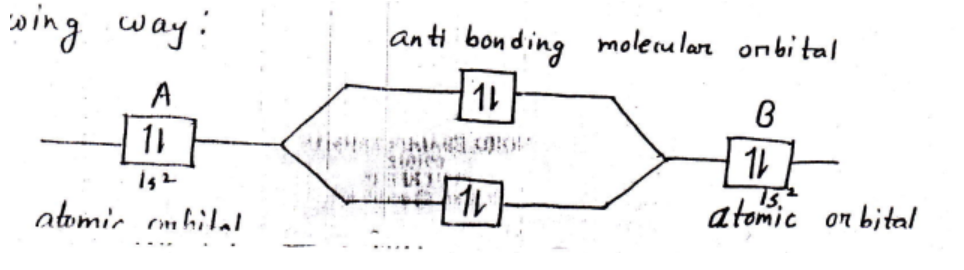 wing way:
anti bonding molecular orbital
A
B
1↿⇂
1s²
1s²
atomic orbital
atomic orbital